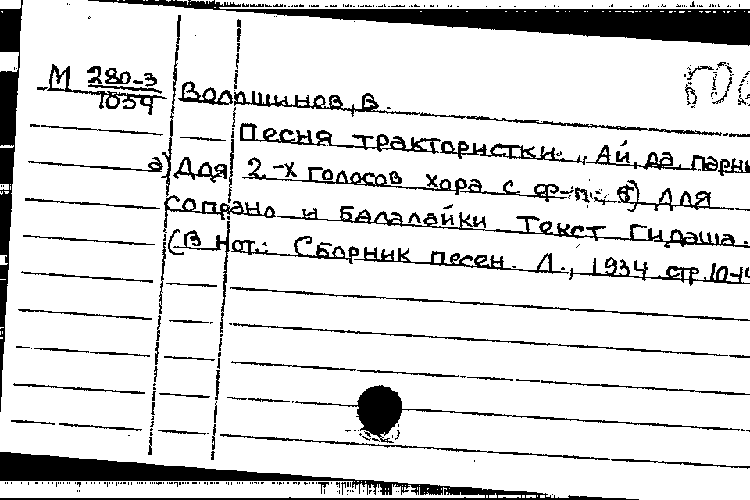 М 280-3
1034
Волошинов, В.
Песня трактористки: „Ай, да, парни
а) Для 2-х голосов хора с ф-п.; б) для
сопрано и балалайки Текст Гидаша.
(В нот.: Сборник песен. Л., 1934 стр. 10-14